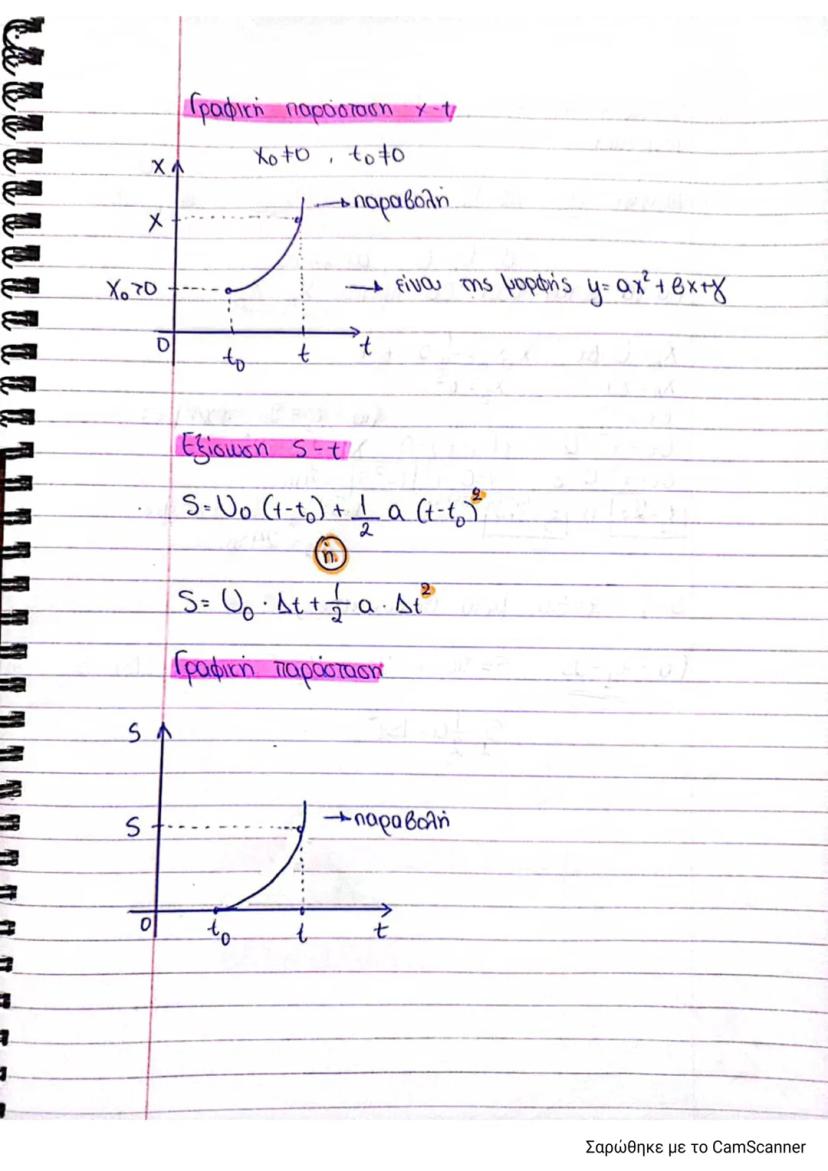 Γραφική παράσταση x-t
x₀≠0 , t₀≠0
x
x
→ παραβολή
x₀>0
→ είναι της μορφής y=αx²+βx+γ
0
t₀
t
t
Εξίσωση S-t
S=υ₀ (t-t₀) + 1/2 a (t-t₀)²
ή
S= υ₀ · Δt + 1/2 a · Δt²
Γραφική παράσταση
S
S
→ παραβολή
0
t₀
t
t
Σαρώθηκε με το CamScanner